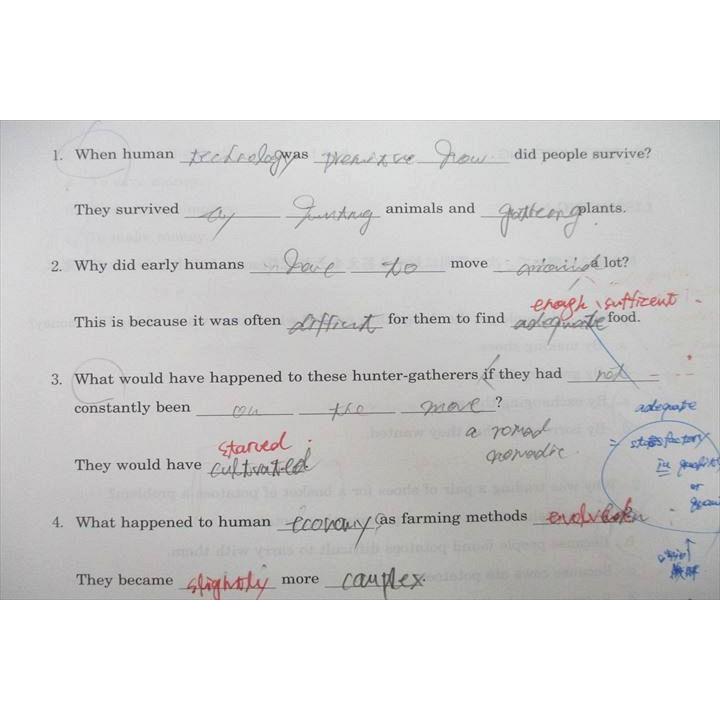 1. When human technology was premitive how did people survive?
They survived by hunting animals and gathering plants.
2. Why did early humans have to move around a lot?
enough, sufficent
This is because it was often difficult for them to find adequate food.
3. What would have happened to these hunter-gatherers if they had not
adequate
constantly been on the move?
a nomad
nomadic
starved
They would have cultivated
in
or
4. What happened to human economy as farming methods
They became slightly more complex.